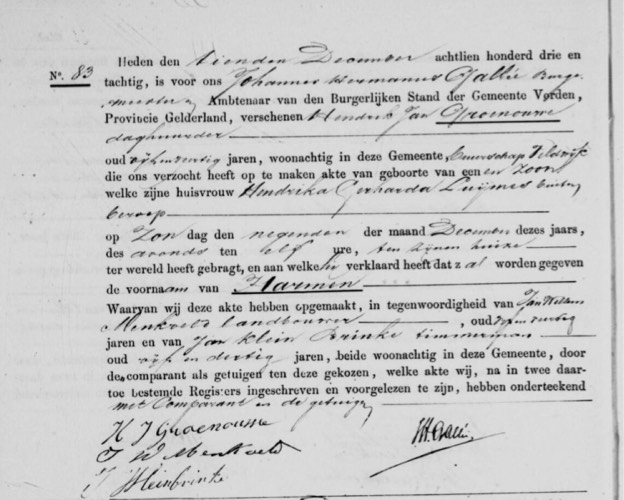 Nº. 83
Heden den tienden December achttien honderd drie en
tachtig, is voor ons Johannes Hermanus Gallée Burge-
meester, Ambtenaar van den Burgerlijken Stand der Gemeente Vorden,
Provincie Gelderland, verschenen Hendrik Jan Groenouwe
daghuurder
oud vijf en veertig jaren, woonachtig in deze Gemeente, buurschap Veldwijk
die ons verzocht heeft op te maken akte van geboorte van een en Zoon
welke zijne huisvrouw Hendrika Gerharda Luijmes buiten
beroep
op Zon dag den negenden der maand December dezes jaars,
des avonds ten elf ure, ten zijnen huize
ter wereld heeft gebragt, en aan welke hij verklaard heeft dat z al worden gegeven
de voornaam van Harmen
Waarvan wij deze akte hebben opgemaakt, in tegenwoordigheid van Jan Willem
Menkveld landbouwer, oud veertig
jaren en van Jan Klein Brinke timmerman
oud vijf en dertig jaren, beide woonachtig in deze Gemeente, door
de comparant als getuigen ten deze gekozen, welke akte wij, na in twee daar-
toe bestemde Registers ingeschreven en voorgelezen te zijn, hebben onderteekend
met Comparant en de getuigen
H J Groenouwe
J W Menkveld
J Kleinbrinke
JHGallée